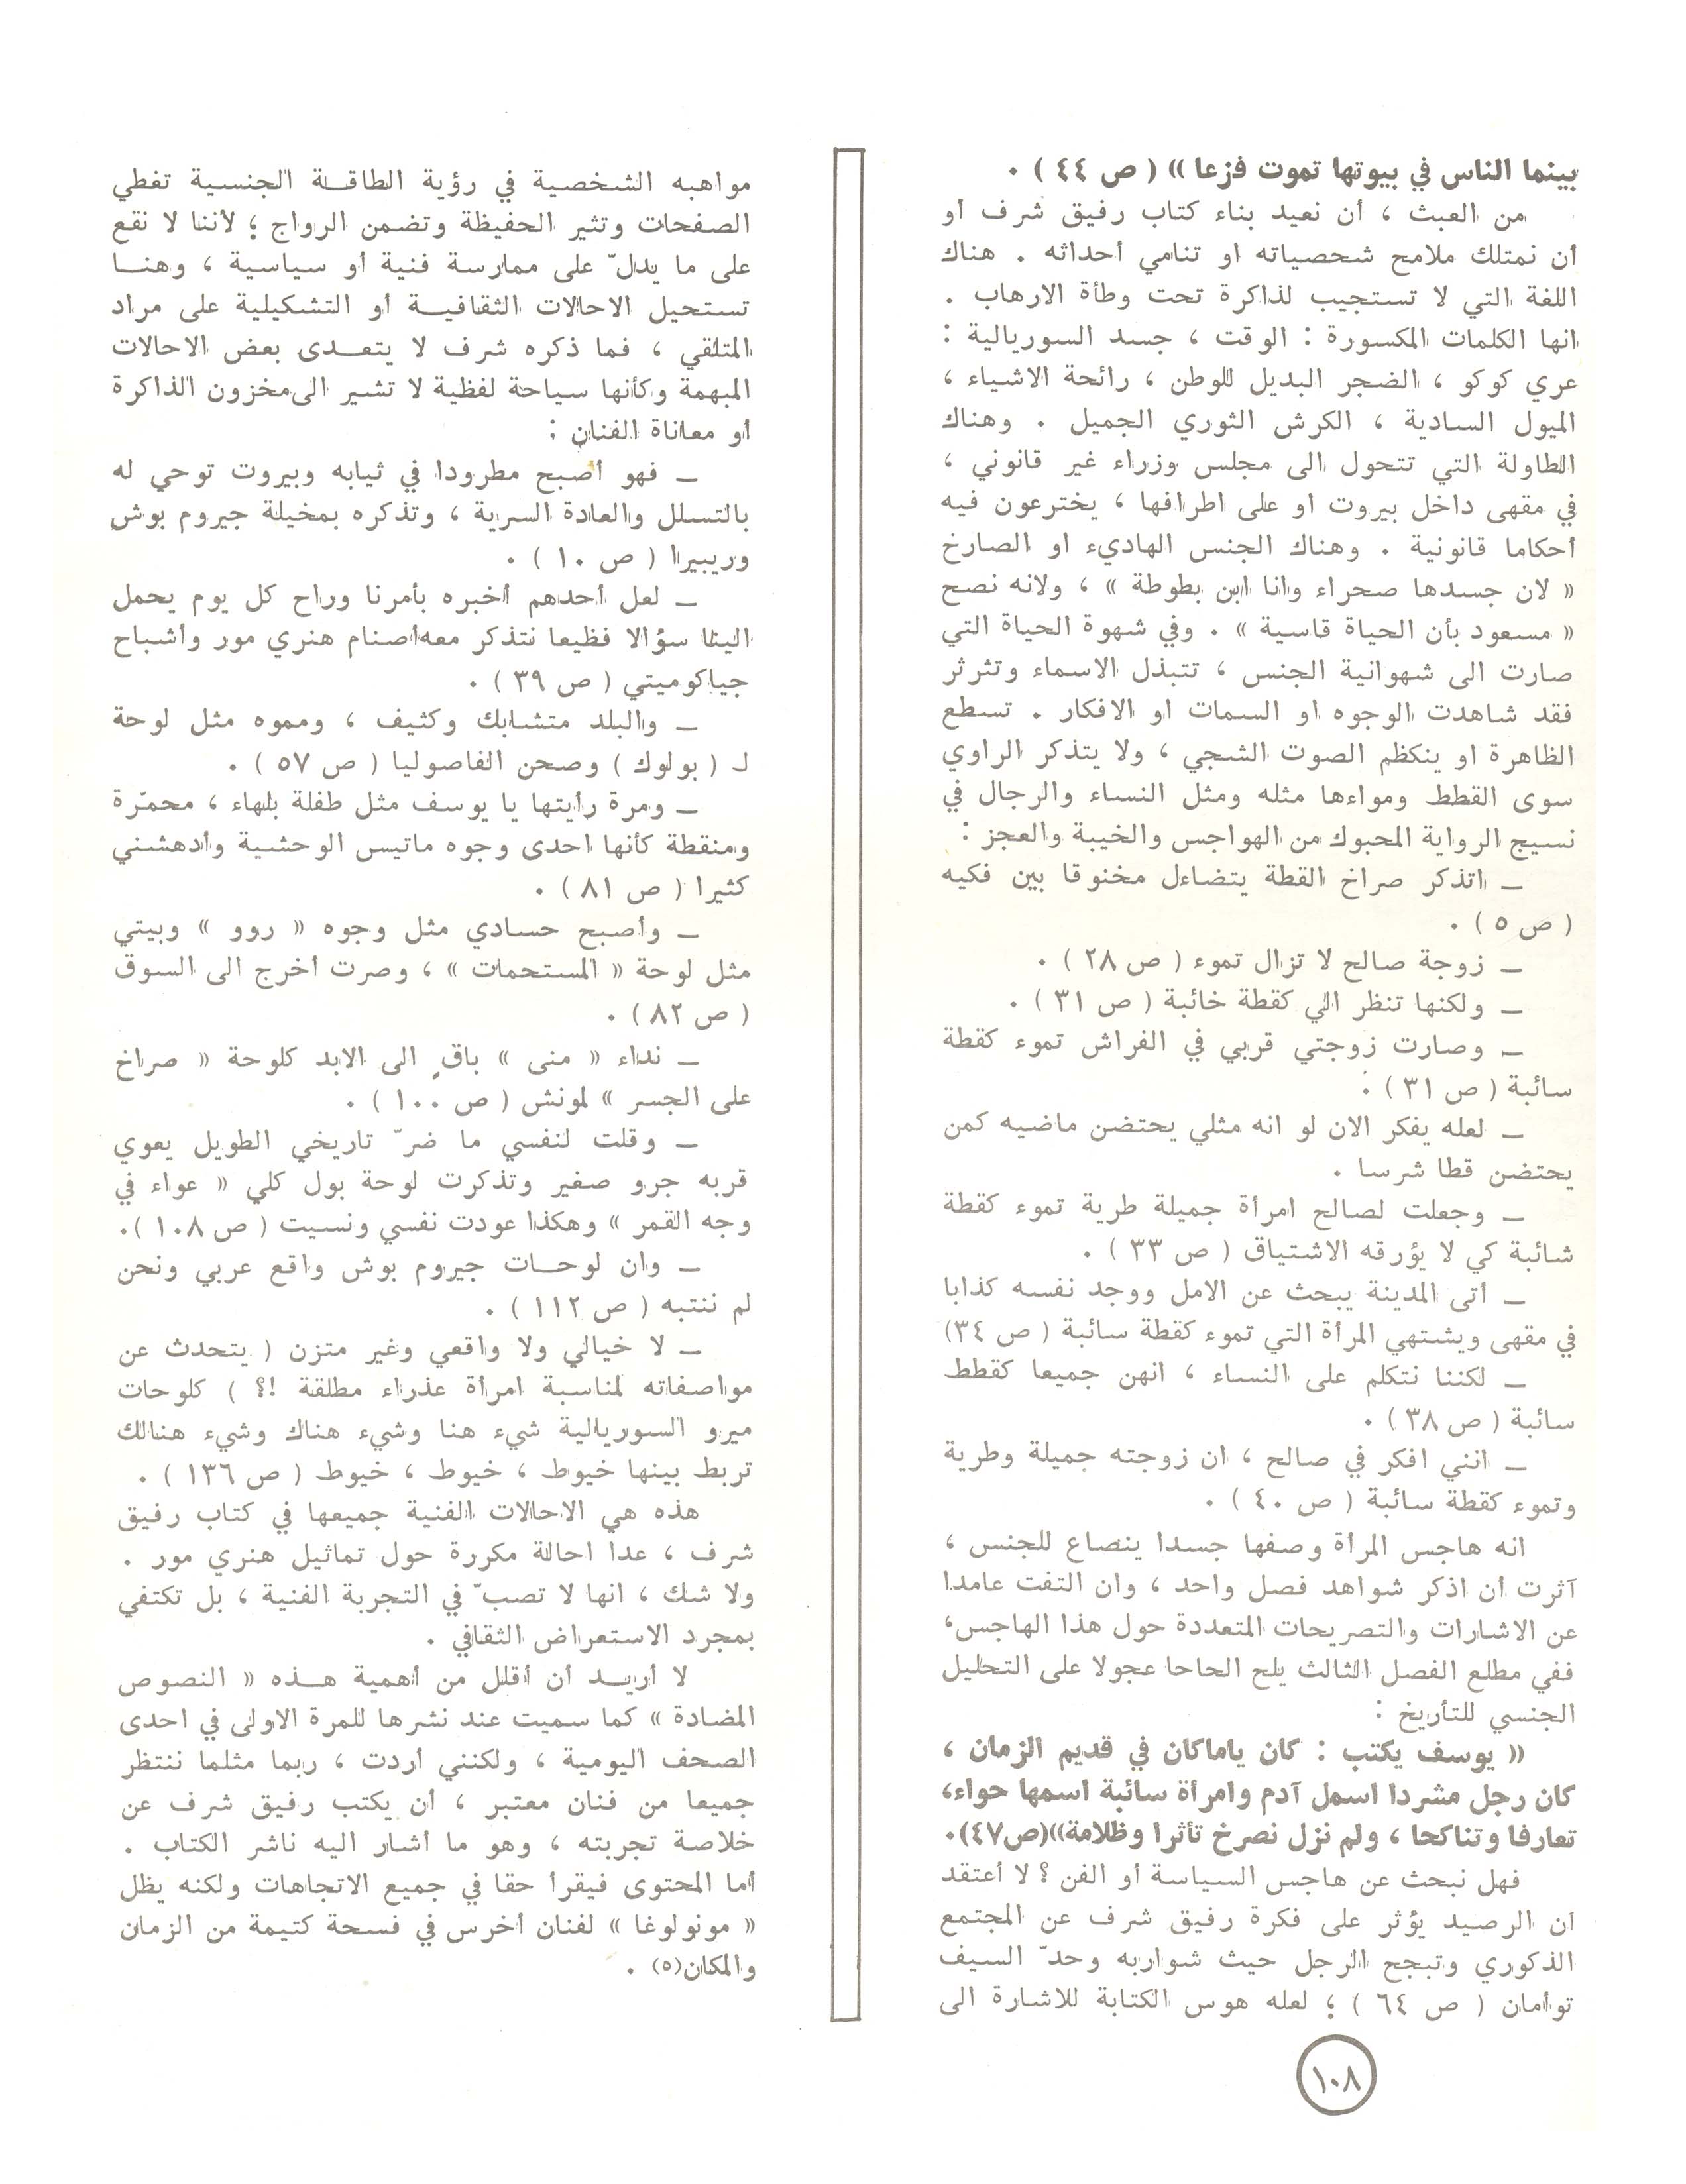 بينما الناس في بيوتها تموت فزعا » ( ص ٤٤ ) .
من العبث ، أن نعيد بناء كتاب رفيق شرف أو
أن نمتلك ملامح شخصياته او تنامي أحداثه . هناك
اللغة التي لا تستجيب لذاكرة تحت وطأة الارهاب .
انها الكلمات المكسورة : الوقت ، جسد السوريالية :
عري كوكو ، الضجر البديل للوطن ، رائحة الاشياء ،
الميول السادية ، الكرش الثوري الجميل . وهناك
الطاولة التي تتحول الى مجلس وزراء غير قانوني ،
في مقهى داخل بيروت او على اطرافها ، يخترعون فيه
أحكاما قانونية . وهناك الجنس الهاديء او الصارخ
« لان جسدها صحراء وانا ابن بطوطة » ، ولانه نصح
« مسعود بأن الحياة قاسية » . وفي شهوة الحياة التي
صارت الى شهوانية الجنس ، تتبذل الاسماء وتثرثر
فقد شاهدت الوجوه او السمات او الافكار . تسطع
الظاهرة او ينكظم الصوت الشجي ، ولا يتذكر الراوي
سوى القطط ومواءها مثله ومثل النساء والرجال في
نسيج الرواية المحبوك من الهواجس والخيبة والعجز :
ـ اتذكر صراخ القطة يتضاءل مخنوقا بين فكيه
( ص ٥ ) .
ـ زوجة صالح لا تزال تموء ( ص ٢٨ ) .
ـ ولكنها تنظر الي كقطة خائبة ( ص ٣١ ) .
ـ وصارت زوجتي قربي في الفراش تموء كقطة
سائبة ( ص ٣١ ) .
ـ لعله يفكر الان لو انه مثلي يحتضن ماضيه كمن
يحتضن قطا شرسا .
ـ وجعلت لصالح امرأة جميلة طرية تموء كقطة
شائبة كي لا يؤرقه الاشتياق ( ص ٣٣ ) .
ـ أتى المدينة يبحث عن الامل ووجد نفسه كذابا
في مقهى ويشتهي المرأة التي تموء كقطة سائبة ( ص ٣٤)
ـ لكننا نتكلم على النساء ، انهن جميعا كقطط
سائبة ( ص ٣٨ ) .
ـ انني افكر في صالح ، ان زوجته جميلة وطرية
وتموء كقطة سائبة ( ص ٤٠ ) .
انه هاجس المرأة وصفها جسدا ينصاع للجنس ،
آثرت ان اذكر شواهد فصل واحد ، وان التفت عامدا
عن الاشارات والتصريحات المتعددة حول هذا الهاجس،
ففي مطلع الفصل الثالث يلح الحاحا عجولا على التحليل
الجنسي للتأريخ :
« يوسف يكتب : كان ياماكان في قديم الزمان ،
كان رجل مشردا اسمل آدم وامرأة سائبة اسمها حواء،
تعارفا وتناكحا ، ولم نزل نصرخ تأثرا وظلامة»(ص٤٧).
فهل نبحث عن هاجس السياسة أو الفن ؟ لا أعتقد
ان الرصيد يؤثر على فكرة رفيق شرف عن المجتمع
الذكوري وتبجح الرجل حيث شواربه وحدّ السيف
توأمان ( ص ٦٤ ) ؛ لعله هوس الكتابة للاشارة الى
مواهبه الشخصية في رؤية الطاقة الجنسية تغطي
الصفحات وتثير الحفيظة وتضمن الرواج ؛ لأننا لا نقع
على ما يدلّ على ممارسة فنية أو سياسية ، وهنا
تستحيل الاحالات الثقافية أو التشكيلية على مراد
المتلقي ، فما ذكره شرف لا يتعدى بعض الاحالات
المبهمة وكأنها سياحة لفظية لا تشير الى مخزون الذاكرة
أو معاناة الفنان :
ـ فهو أصبح مطرودا في ثيابه وبيروت توحي له
بالتسلل والعادة السرية ، وتذكره بمخيلة جيروم بوش
وريبيرا ( ص ١٠ ) .
ـ لعل أحدهم أخبره بأمرنا وراح كل يوم يحمل
الينا سؤالا فظيعا نتذكر معه أصنام هنري مور وأشباح
جياكوميتي ( ص ٣٩ ) .
ـ والبلد متشابك وكثيف ، ومموه مثل لوحة
لـ ( بولوك ) وصحن الفاصوليا ( ص ٥٧ ) .
ـ ومرة رأيتها يا يوسف مثل طفلة بلهاء ، محمّرة
ومنقطة كأنها احدى وجوه ماتيس الوحشية وأدهشني
كثيرا ( ص ٨١ ) .
ـ وأصبح حسادي مثل وجوه « روو » وبيتي
مثل لوحة « المستحمات » ، وصرت أخرج الى السوق
( ص ٨٢ ) .
ـ نداء « منى » باقٍ الى الابد كلوحة « صراخ
على الجسر » لمونش ( ص ١٠٠ ) .
ـ وقلت لنفسي ما ضرّ تاريخي الطويل يعوي
قربه جرو صغير وتذكرت لوحة بول كلي « عواء في
وجه القمر » وهكذا عودت نفسي ونسيت ( ص ١٠٨ ).
ـ وان لوحات جيروم بوش واقع عربي ونحن
لم ننتبه ( ص ١١٢ ) .
ـ لا خيالي ولا واقعي وغير متزن ( يتحدث عن
مواصفاته لمناسبة امرأة عذراء مطلقة !؟ ) كلوحات
ميرو السوريالية شيء هنا وشيء هناك وشيء هنالك
تربط بينها خيوط ، خيوط ، خيوط ( ص ١٣٦ ) .
هذه هي الاحالات الفنية جميعها في كتاب رفيق
شرف ، عدا احالة مكررة حول تماثيل هنري مور .
ولا شك ، انها لا تصبّ في التجربة الفنية ، بل تكتفي
بمجرد الاستعراض الثقافي .
لا أريد أن أقلل من أهمية هذه « النصوص
المضادة » كما سميت عند نشرها للمرة الاولى في احدى
الصحف اليومية ، ولكنني أردت ، ربما مثلما ننتظر
جميعا من فنان معتبر ، أن يكتب رفيق شرف عن
خلاصة تجربته ، وهو ما أشار اليه ناشر الكتاب .
أما المحتوى فيقرأ حقا في جميع الاتجاهات ولكنه يظل
« مونولوغا » لفنان أخرس في فسحة كتيمة من الزمان
والمكان(٥) .
١٠٨